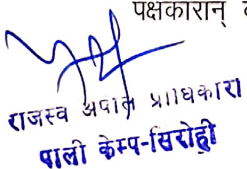 पक्षकारान्
राजस्व अपील प्राधिकारी
पाली केम्प-सिरोही